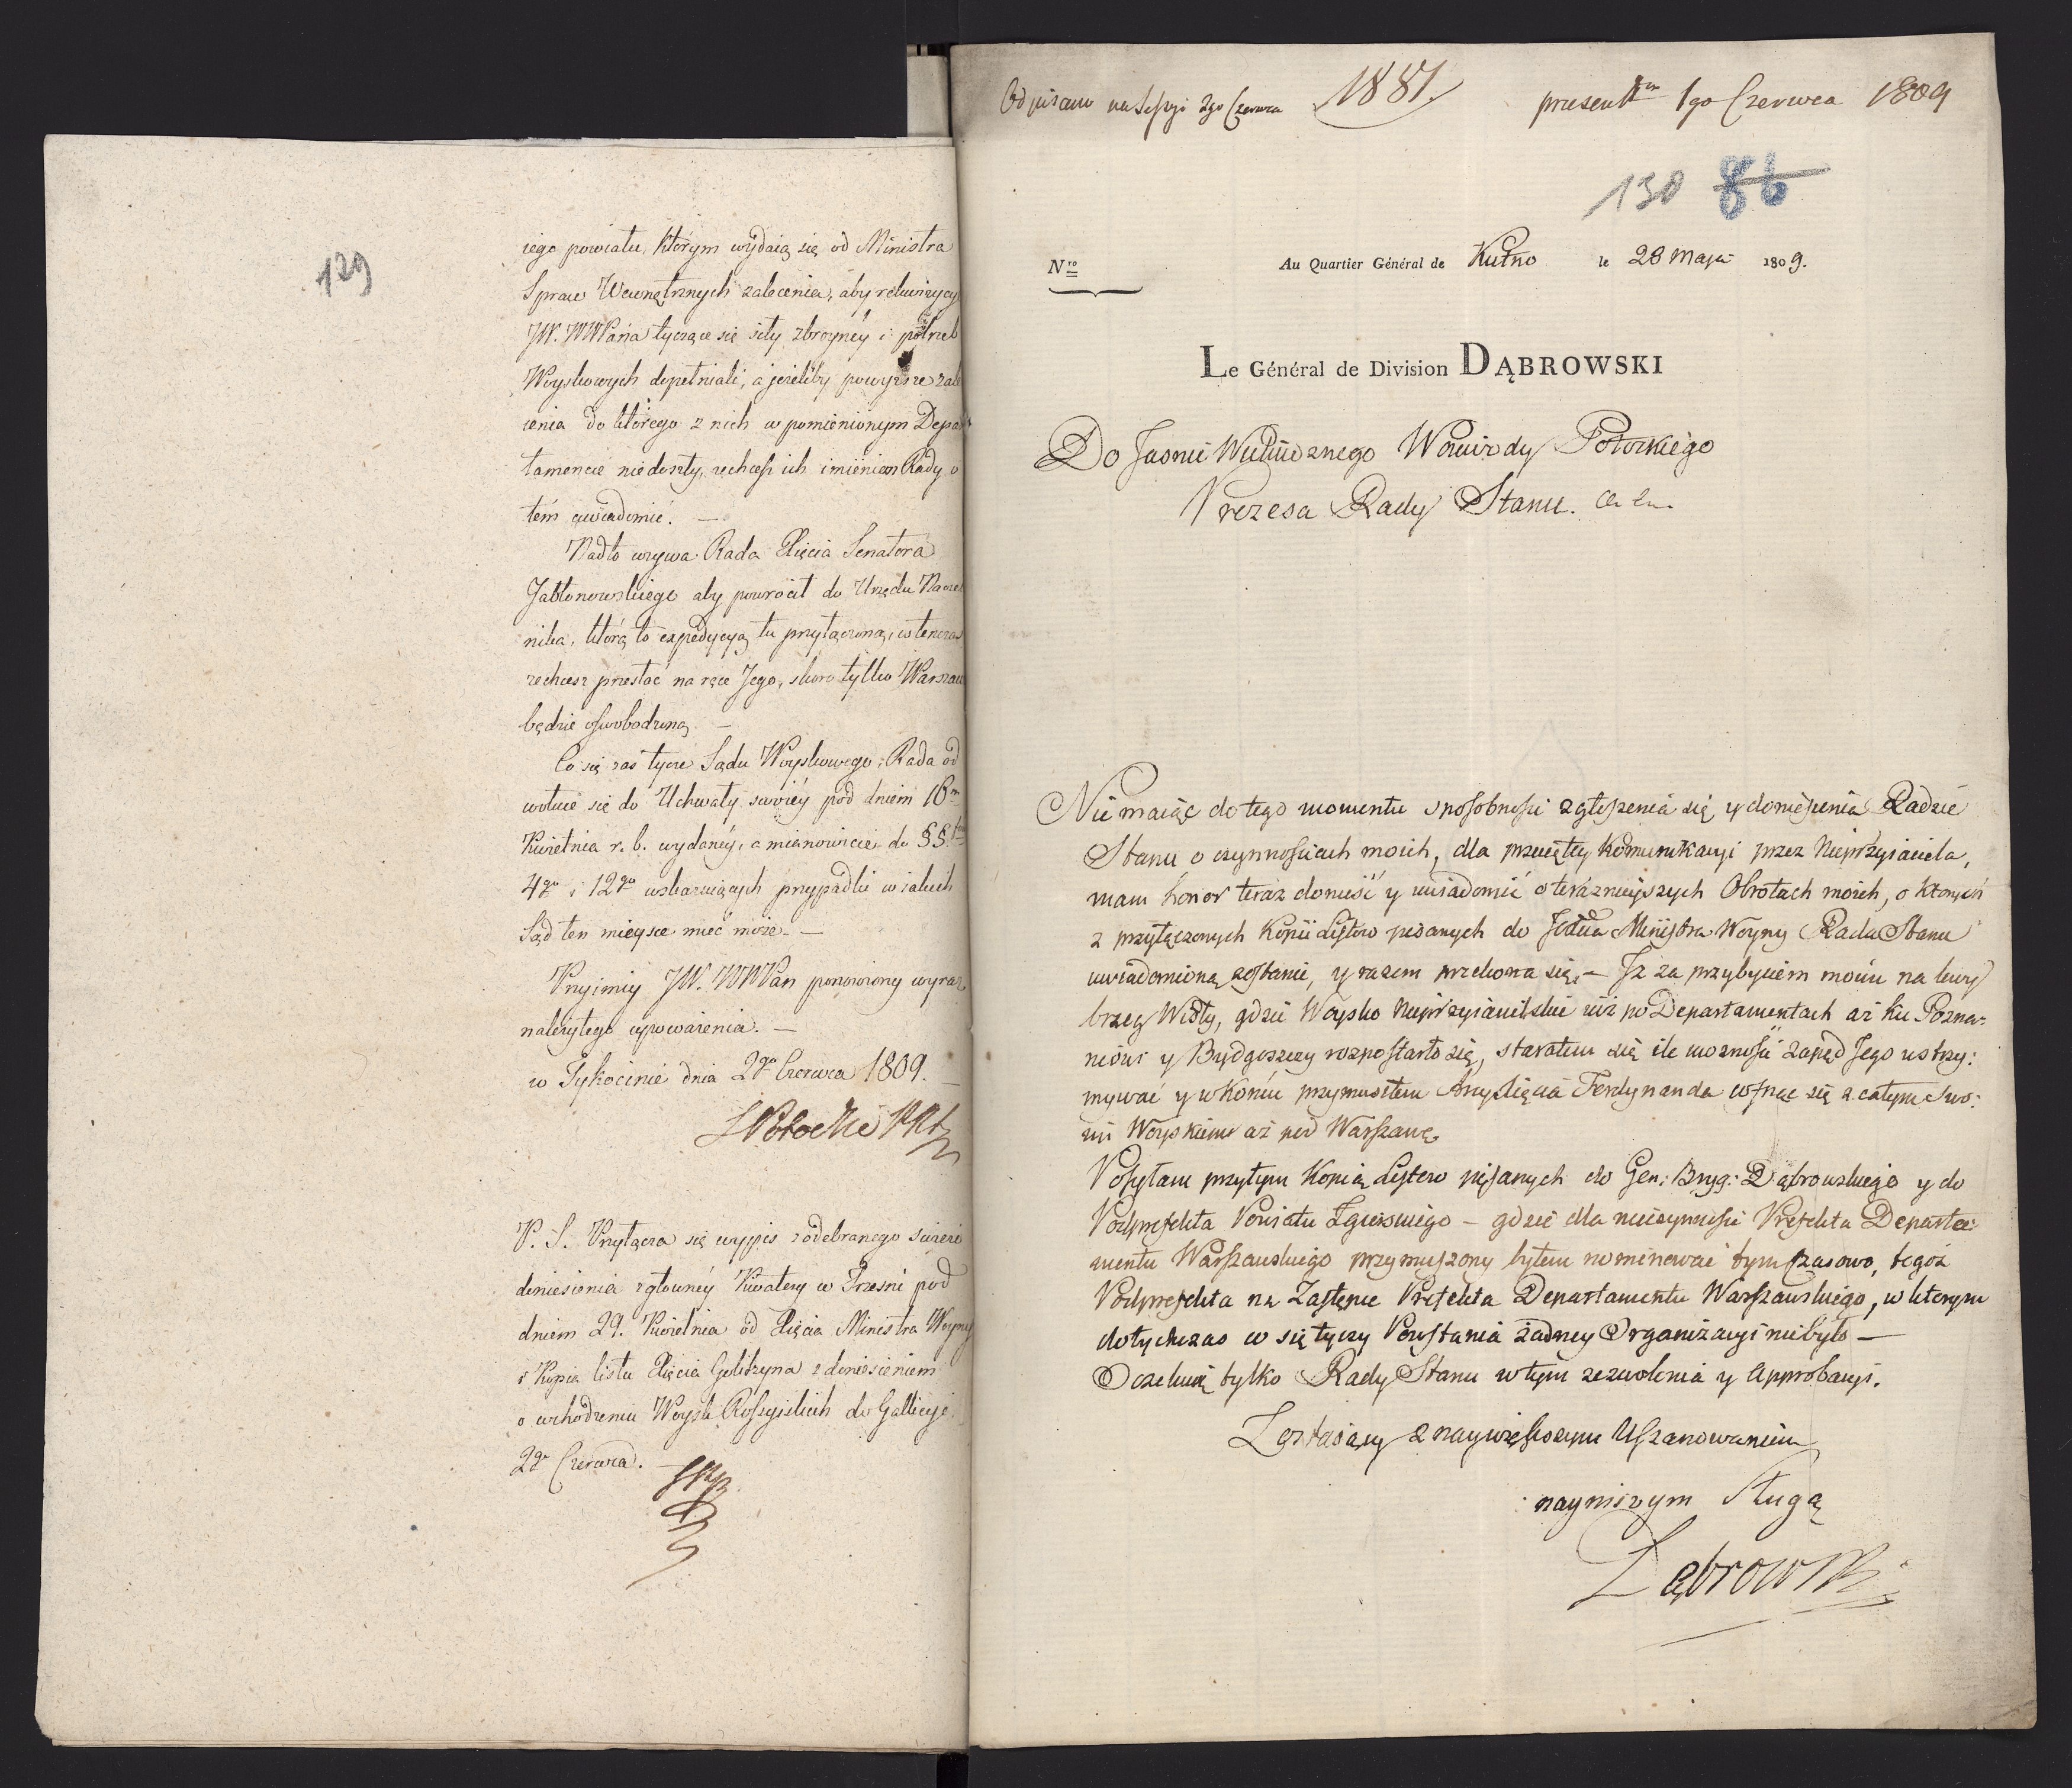 129
iego powiatu, którym wydaią się od Ministra
Spraw Wewnętrznych zalecenia, aby rekwizycye
JW. WWPana tyczące się siły zbroyney i potrzeb
Woyskowych dopełniali, a jeżeliby powyższe zale
cenia do którego z nich w pomienionym Depar
tamencie niedoszły, zechcesz ich imieniem Rady o
tém uwiadomić. —
Nadto wzywa Rada Xięcia Senatora
Jabłonowskiego aby powrócił do Urzędu Naczel
nika, którą to expedycyą tu przyłączoną, wtenczas
zechcesz przesłać na ręce Jego, skoro tylko Warszawa
będzie oswobodzoną —
Co się zaś tycze Sądu Woyskowego, Rada od
wołuie się do Uchwały swoiéy pod dniem 18m
Kwietnia r. b. wydanéy, a mianowicie do §§
4go i 12go wskazuiących przypadki w iakich
Sąd ten mieysce mieć może. —
Przyimiy JW. WWPan ponowiony wyraz
należytego uszanowania. —
w Tykocinie dnia 2go Czerwca 1809. —
SPotocki
P. S. Przyłącza się wypis z odebranego świeżo
doniesienia z głównéy Kwatery w Trześni pod
dniem 29. Kwietnia od Xięcia Ministra Woyny
i Kopia listu Xięcia Golitzyna z doniesieniem
o wchodzeniu Woysk Rossyiskich do Gallicyi.
2go Czerwca. —
Odpisano na Sessyi 2go Czerwca
1881.
present tm 1go Czerwca 1809
130 86
Nro
Au Quartier Général de Kutno le 28 Maja 1809.
Le Général de Division DĄBROWSKI
Do Jaśnie Wielmożnego Woiewody Potockiego
Prezesa Rady Stanu.
Nie maiąc do tego momentu sposobności zgłoszenia się y doniesienia Radzie
Stanu o czynnościach moich, dla przeciętey Kommunikacyi przez Nieprzyiaciela,
mam honor teraz donieść y uwiadomić o teraznieyszych Obrotach moich, o których
z przyłączonych Kopii Listow pisanych do Xięcia Ministra Woyny Rada Stanu
uwiadomioną zostanie, y razem przekona się, — Iż za przybyciem moim na lewy
brzeg Wisły, gdzie Woysko Nieprzyiacielskie iuż po Departamentach aż ku Pozna=
niowi y Bydgoszczy rozpostarło się, starałem się ile możności zapęd Jego wstrzy:
mywać y w Końcu przymusiłem Arcyxięcia Ferdynanda cofnąc się z całym swo:
im Woyskiem aż pod Warszawę.
Posyłam przytym Kopią Listow pisanych do Gen: Bryg: Dąbrowskiego y do
Podprefekta Powiatu Zgierskiego — gdzie dla nieczynności Prefekta Departa:
mentu Warszawskiego przymuszony byłem nominować tym czasowo, tegoż
Podprefekta na Zastępce Prefekta Departamentu Warszawskiego, w którym
dotychczas co się tyczy Powstania żadney Organizacyi niebyło —
Oczekuię tylko Rady Stanu w tym zezwolenia y Approbacyi.
Zostaiący z naywiększym Uszanowaniem
nayniższym Sługą
Dąbrowski